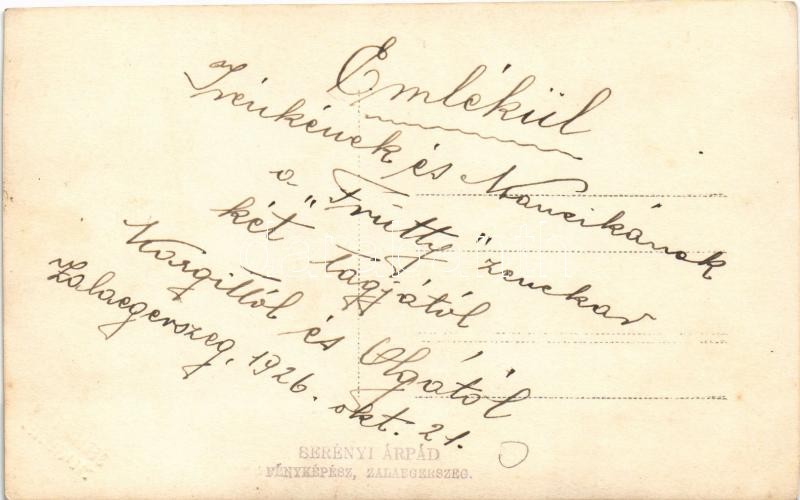 Emlékül
Irénkének és Mancikának
a "Frutty" zenekar
két tagjától
Margittól és Olgától
Zalaegerszeg, 1926. okt. 21.
SERÉNYI ÁRPÁD
FÉNYKÉPÉSZ, ZALAEGERSZEG.